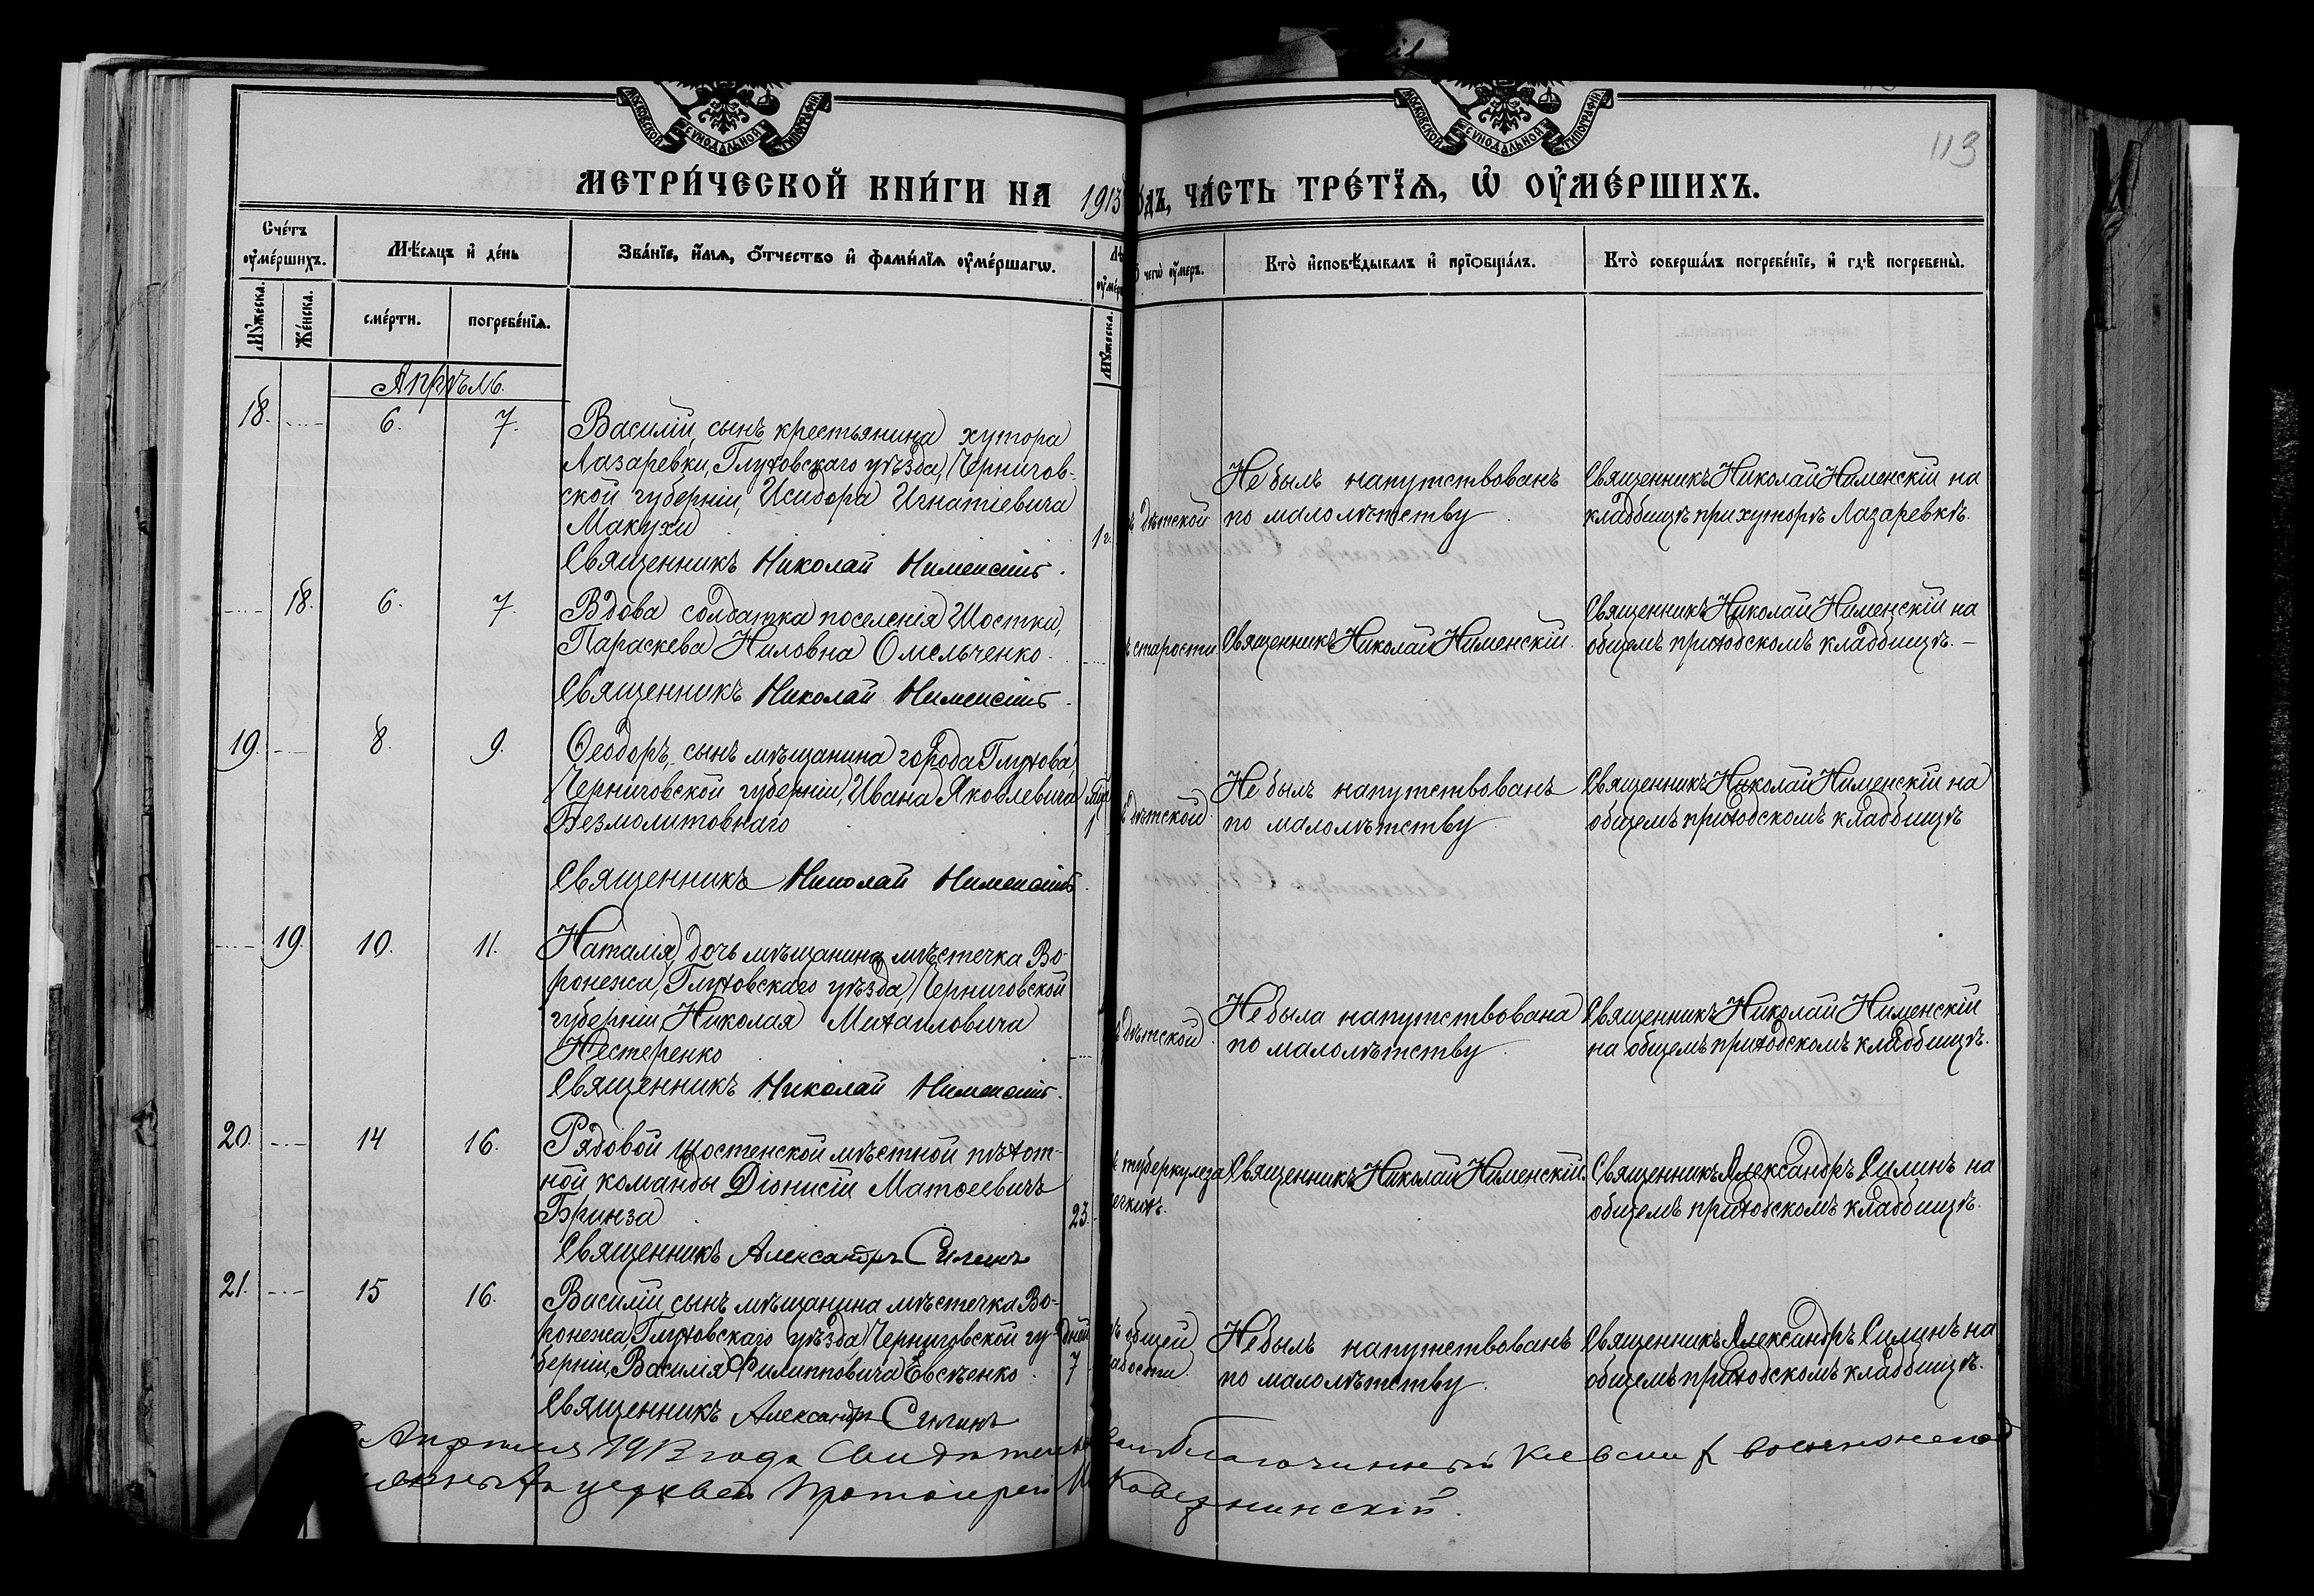 МОСКОВСКОЙ СУНОДАЛЬНОЙ ТИПОГРАФІИ
МОСКОВСКОЙ СУНОДАЛЬНОЙ ТИПОГРАФІИ
113
МЕТРИ́ЧЕСКОЙ КНИ́ГИ НА 1913
о́дъ, ЧА́СТЬ ТРЕ́ТЇѦ, Ѡ҆ ОУ҆МЕ́РШИХЪ.
Сче́тъ оу҆ме́ршихъ.
Мꙋ́жеска.
Же́нска.
Мѣ́сяцъ и҆ де́нь
сме́рти.
погребе́нїѧ.
Зва́нїе, и҆́мѧ, ѻ҆́тчество и҆ фами́лїѧ оу҆ме́ршагѡ.
Мꙋ́жеска.
чегѡ̀ оу҆́меръ.
Кто̀ и҆сповѣ́дывалъ и҆ прїѡбща́лъ.
Кто̀ соверша́лъ погребе́нїе, и҆ гдѣ̀ погребены̀.
Апрѣль.
18. 6. 7. Василій, сынъ крестьянина хутора
Лазаревки, Глуховскаго уѣзда, Чернигов-
ской губерніи, Исидора Игнатіевича
Макухи 1 г.
Священникъ Николай Нименскій.
дѣтской
Не былъ напутствованъ
по малолѣтству.
Священникъ Николай Нименскій на
кладбищѣ при хуторѣ Лазаревкѣ.
18. 6. 7. Вдова солдатка поселенія Шостки,
Параскева Ниловна Омельченко.
Священникъ Николай Нименскій.
старости
Священникъ Николай Нименскій.
Священникъ Николай Нименскій на
общемъ приходскомъ кладбищѣ. —
19. 8. 9. Ѳеодоръ, сынъ мѣщанина города Глухова,
Черниговской губерніи, Ивана Яковлевича
Безмолитовнаго 1
Священникъ Николай Нименскій.
дѣтской.
Не былъ напутствованъ
по малолѣтству
Священникъ Николай Нименскій на
общемъ приходскомъ кладбищѣ
19. 10. 11. Наталія, дочь мѣщанина мѣстечка Во-
ронежа, Глуховскаго уѣзда, Черниговской
губерніи, Николая Михаиловича
Нестеренко
Священникъ Николай Нименскій.
дѣтской.
Не была напутствована
по малолѣтству.
Священникъ Николай Нименскій
на общемъ приходскомъ кладбищѣ.
20. 14 16. Рядовой Шостенской мѣстной пѣхот-
ной команды Діонисій Матѳеевичъ
Бринза 23.
Священникъ Александръ Силинъ
туберкулеза
легкихъ.
Священникъ Николай Нименскій.
Священникъ Александръ Силинъ на
общемъ приходскомъ кладбищѣ.
21. 15 16. Василій, сынъ мѣщанина мѣстечка Во-
ронежа, Глуховскаго уѣзда, Черниговской гу- дней
берніи, Василія Филипповича Евсѣенко. 7
Священникъ Александръ Силинъ
общей
слабости.
Не былъ напутствованъ
по малолѣтству.
Священникъ Александръ Силинъ на
общемъ приходскомъ кладбищѣ.
Апрѣля 1913 года Благочинный Кіевских
церквей Протоіерей